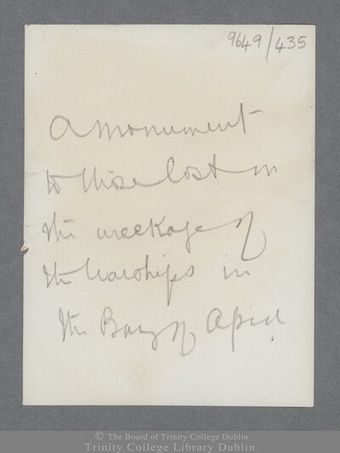 9649/435
A monument
to those lost in
the wreckage of
the Warships in
the Bay of Apia
© The Board of Trinity College Dublin
Trinity College Library Dublin